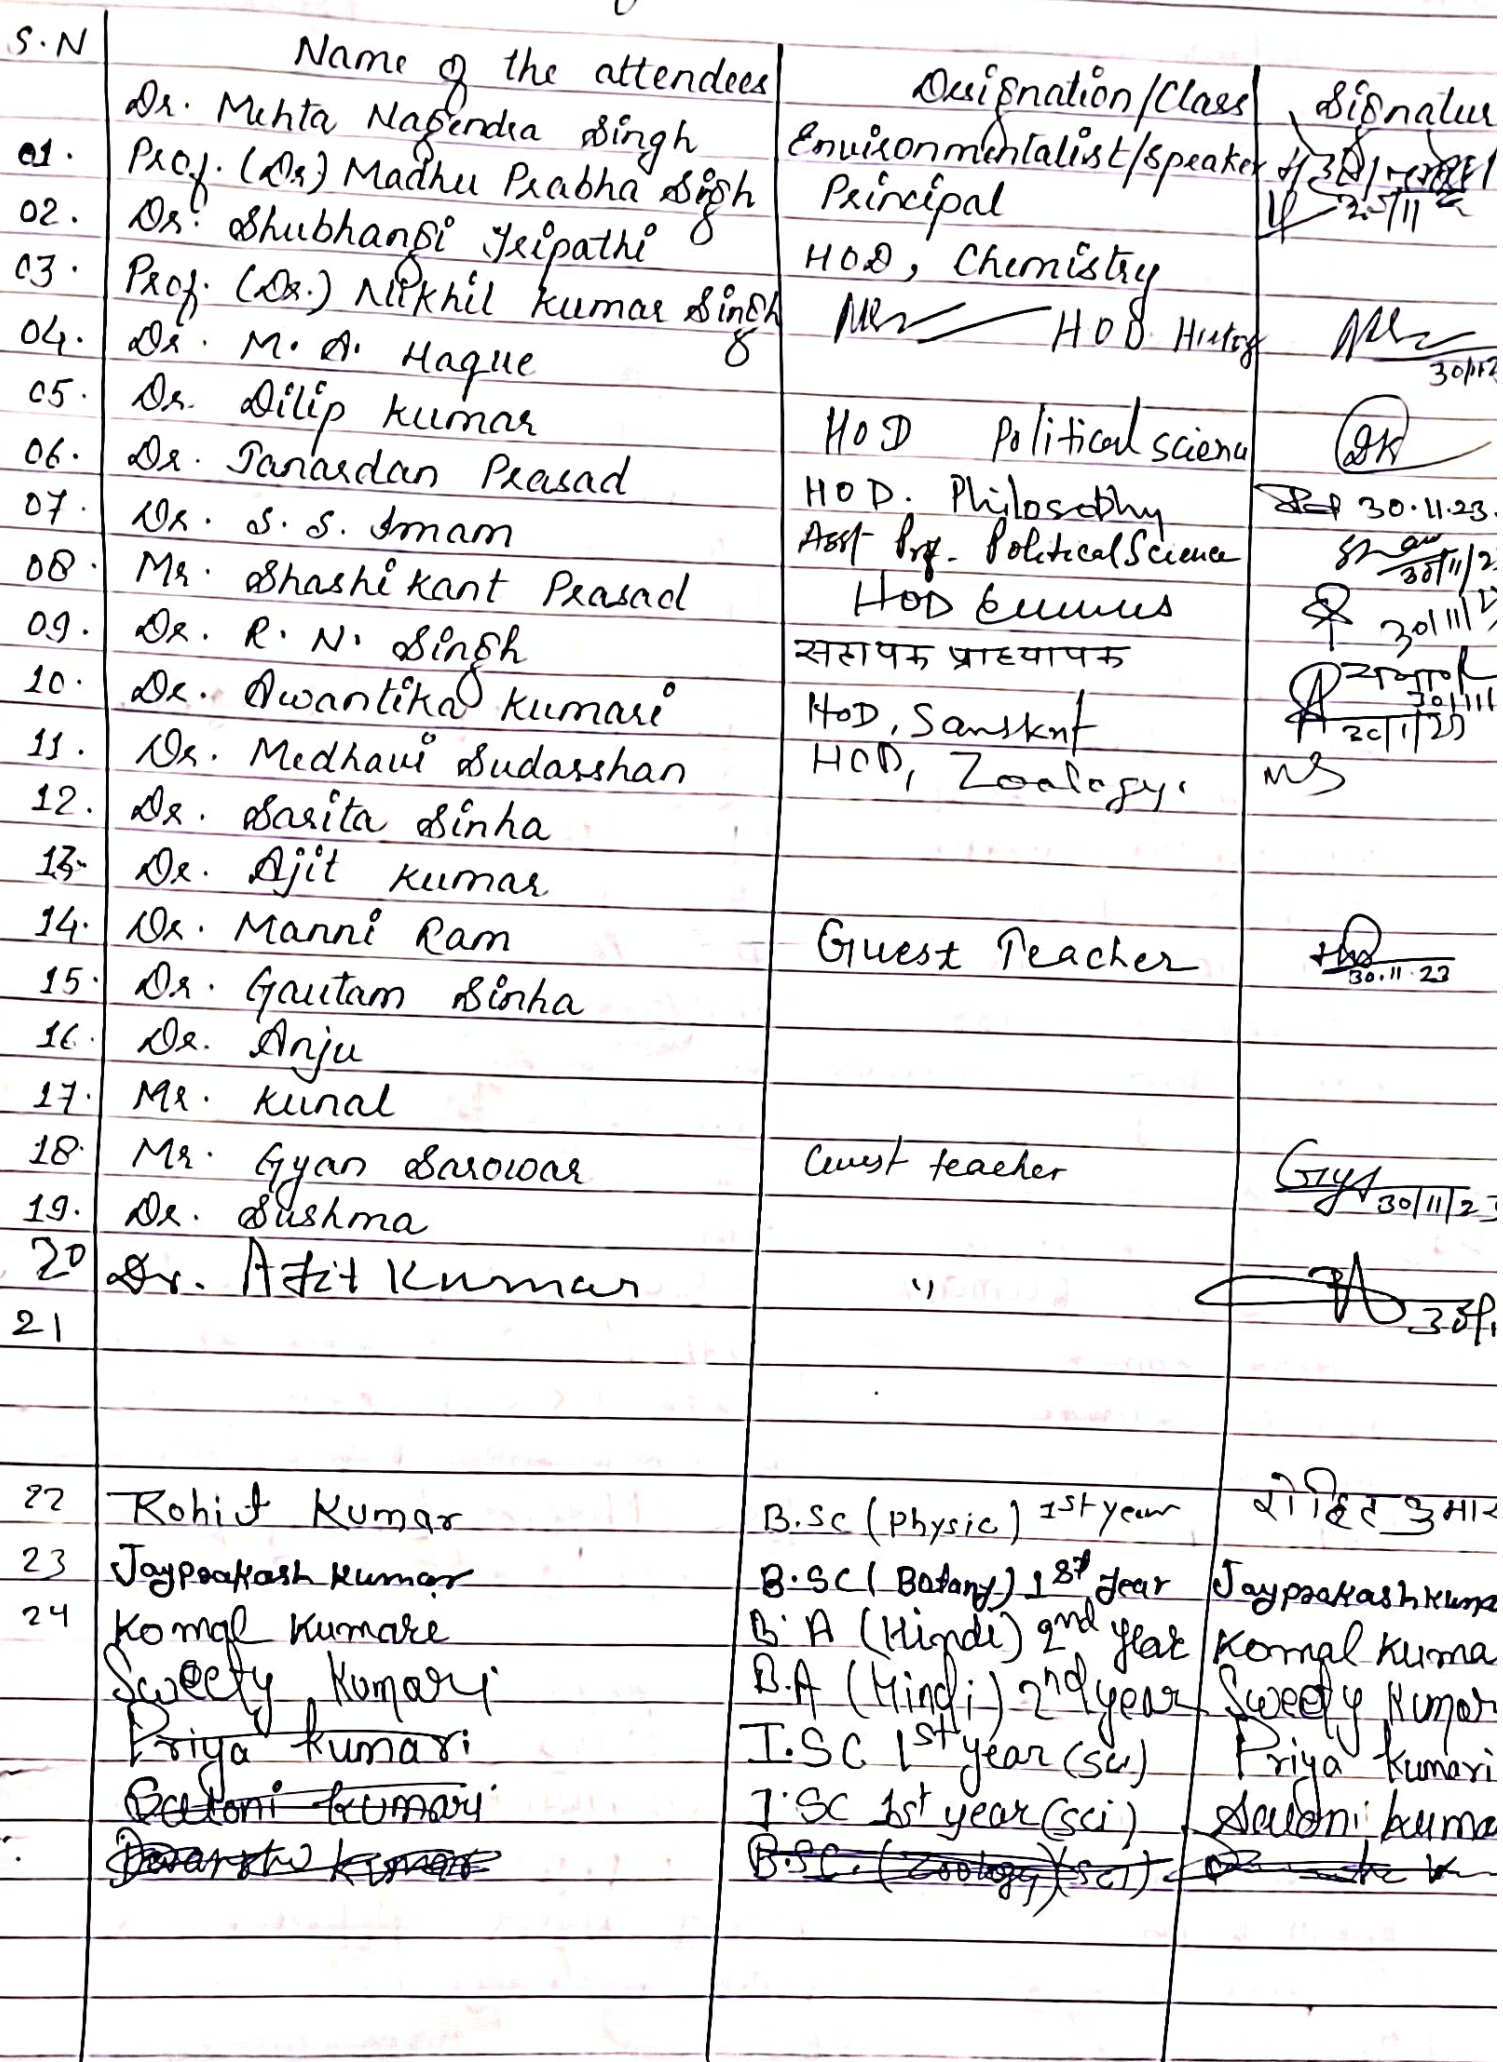 S.N Name of the attendees Designation/Class Signatur
Dr. Mehta Nagendra Singh Environmentalist/Speaker
01. Prof. (Dr) Madhu Prabha Sigh Principal
02. Dr. Shubhangi Tripathi HOD, Chemistry
03. Prof. (Dr.) Nikhil Kumar Singh HOD. History
04. Dr. M. A. Haque
05. Dr. Dilip Kumar HOD Political science DK
06. Dr. Janardan Prasad HOD. Philosophy 30.11.23.
07. Dr. S. S. Imam Asst Prof. Political Science 30/11/2
08. Mr. Shashi Kant Prasad HOD 30/11/
09. Dr. R. N. Singh सहायक प्राध्यापक
10. Dr. Awantika Kumari HOD, Sanskrit
11. Dr. Medhavi Sudarshan HOD, Zoology. MS
12. Dr. Sarita Sinha
13. Dr. Ajit Kumar
14. Dr. Manni Ram Guest Teacher 30.11.23
15. Dr. Gautam Sinha
16. Dr. Anju
17. Mr. Kunal
18. Mr. Gyan Sarowar Guest teacher 30/11/23
19. Dr. Sushma
20 Dr. Ajit Kumar "
21
22 Rohit Kumar B.Sc (Physic) 1st year रोहित कुमार
23 Jayprakash Kumar B.SC (Botany) 1st year Jayprakash Kuma
24 Komal Kumari B.A (Hindi) 2nd year Komal Kuma
Sweety Kumari B.A (Hindi) 2nd year Sweety Kumar
Priya Kumari I.SC 1st year (sci) Priya Kumari
Kumari I.SC 1st year (sci) Saloni Kuma
Kumar B.SC. (Zoology) (SCI)